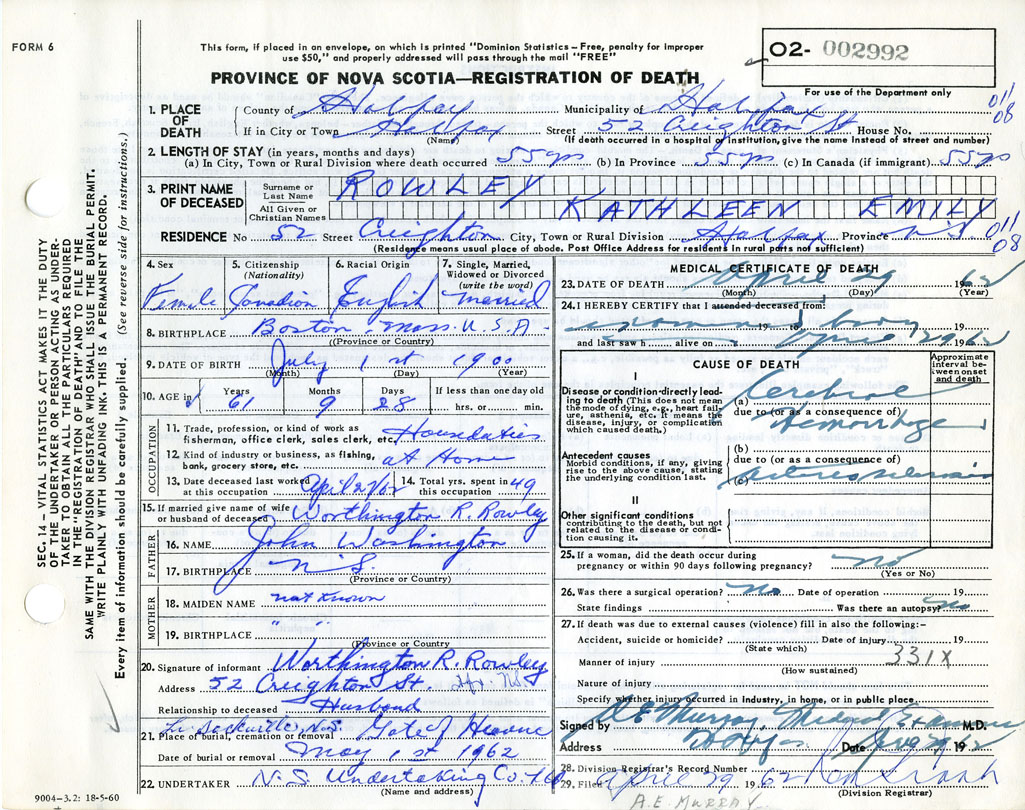 FORM 6
This form, if placed in an envelope, on which is printed "Dominion Statistics – Free, penalty for improper
use $50," and properly addressed will pass through the mail "FREE"
O2- 002992
For use of the Department only
PROVINCE OF NOVA SCOTIA—REGISTRATION OF DEATH
011
08
1. PLACE OF DEATH
County of Halifax Municipality of Halifax
If in City or Town Halifax Street 52 Creighton St House No.
(Name) (If death occurred in a hospital or institution, give the name instead of street and number)
2. LENGTH OF STAY (in years, months and days)
(a) In City, Town or Rural Division where death occurred 55 yrs (b) In Province 55 yrs (c) In Canada (if immigrant) 55 yrs
3. PRINT NAME OF DECEASED
Surname or Last Name ROWLEY
All Given or Christian Names KATHLEEN EMILY
RESIDENCE No 52 Street Creighton City, Town or Rural Division Halifax Province N.S
(Residence means usual place of abode. Post Office Address for residents in rural parts not sufficient)
011
08
4. Sex Female
5. Citizenship (Nationality) Canadian
6. Racial Origin English
7. Single, Married, Widowed or Divorced (write the word) Married
8. BIRTHPLACE Boston Mass. U.S.A
(Province or Country)
9. DATE OF BIRTH July 1st 1900
(Month) (Day) (Year)
10. AGE in Years 61 Months 9 Days 28 If less than one day old hrs. or min.
OCCUPATION
11. Trade, profession, or kind of work as
fisherman, office clerk, sales clerk, etc.
12. Kind of industry or business, as fishing,
bank, grocery store, etc. at Home
13. Date deceased last worked
at this occupation
14. Total yrs. spent in
this occupation 49
15. If married give name of wife
or husband of deceased Worthington R. Rowley
FATHER
16. NAME John Washington
17. BIRTHPLACE N.S.
(Province or Country)
MOTHER
18. MAIDEN NAME not Known
19. BIRTHPLACE " "
(Province or Country)
20. Signature of informant Worthington R. Rowley
Address 52 Creighton St. Hfx. N.S.
Relationship to deceased Husband
21. Place of burial, cremation or removal Sackville N.S. Gate of Heaven
Date of burial or removal May 1st 1962
22. UNDERTAKER N.S. Undertaking Co.
(Name and address)
9004-3.2: 18-5-60
MEDICAL CERTIFICATE OF DEATH
23. DATE OF DEATH April 29 1962
(Month) (Day) (Year)
24. I HEREBY CERTIFY that I attended deceased from:
examined 19 to body 19
and last saw h alive on April 29 1962
CAUSE OF DEATH
Approximate interval between onset and death
I
Disease or condition directly leading to death (This does not mean the mode of dying, e.g., heart failure, asthenia, etc. It means the disease, injury, or complication which caused death.)
(a) Cerebral
due to (or as a consequence of)
Hemorrhage
Antecedent causes
Morbid conditions, if any, giving rise to the above cause, stating the underlying condition last.
(b)
due to (or as a consequence of)
(c)
II
Other significant conditions
contributing to the death, but not related to the disease or condition causing it.
25. If a woman, did the death occur during
pregnancy or within 90 days following pregnancy? No
(Yes or No)
26. Was there a surgical operation? No Date of operation 19
State findings Was there an autopsy? No
27. If death was due to external causes (violence) fill in also the following:–
Accident, suicide or homicide? Date of injury 19
(State which)
Manner of injury 331X
(How sustained)
Nature of injury
Specify whether injury occurred in industry, in home, or in public place.
Signed by A E Murray, Medical Examiner M.D.
Address Halifax Date 29 1962
28. Division Registrar's Record Number
29. Filed April 29 1962
(Division Registrar)
A.E. MURRAY
SEC. 14 – VITAL STATISTICS ACT MAKES IT THE DUTY
OF THE UNDERTAKER OR PERSON ACTING AS UNDER-
TAKER TO OBTAIN ALL THE PARTICULARS REQUIRED
IN THE "REGISTRATION OF DEATH" AND TO FILE THE
SAME WITH THE DIVISION REGISTRAR WHO SHALL ISSUE THE BURIAL PERMIT.
WRITE PLAINLY WITH UNFADING INK. THIS IS A PERMANENT RECORD.
Every item of information should be carefully supplied. (See reverse side for instructions.)